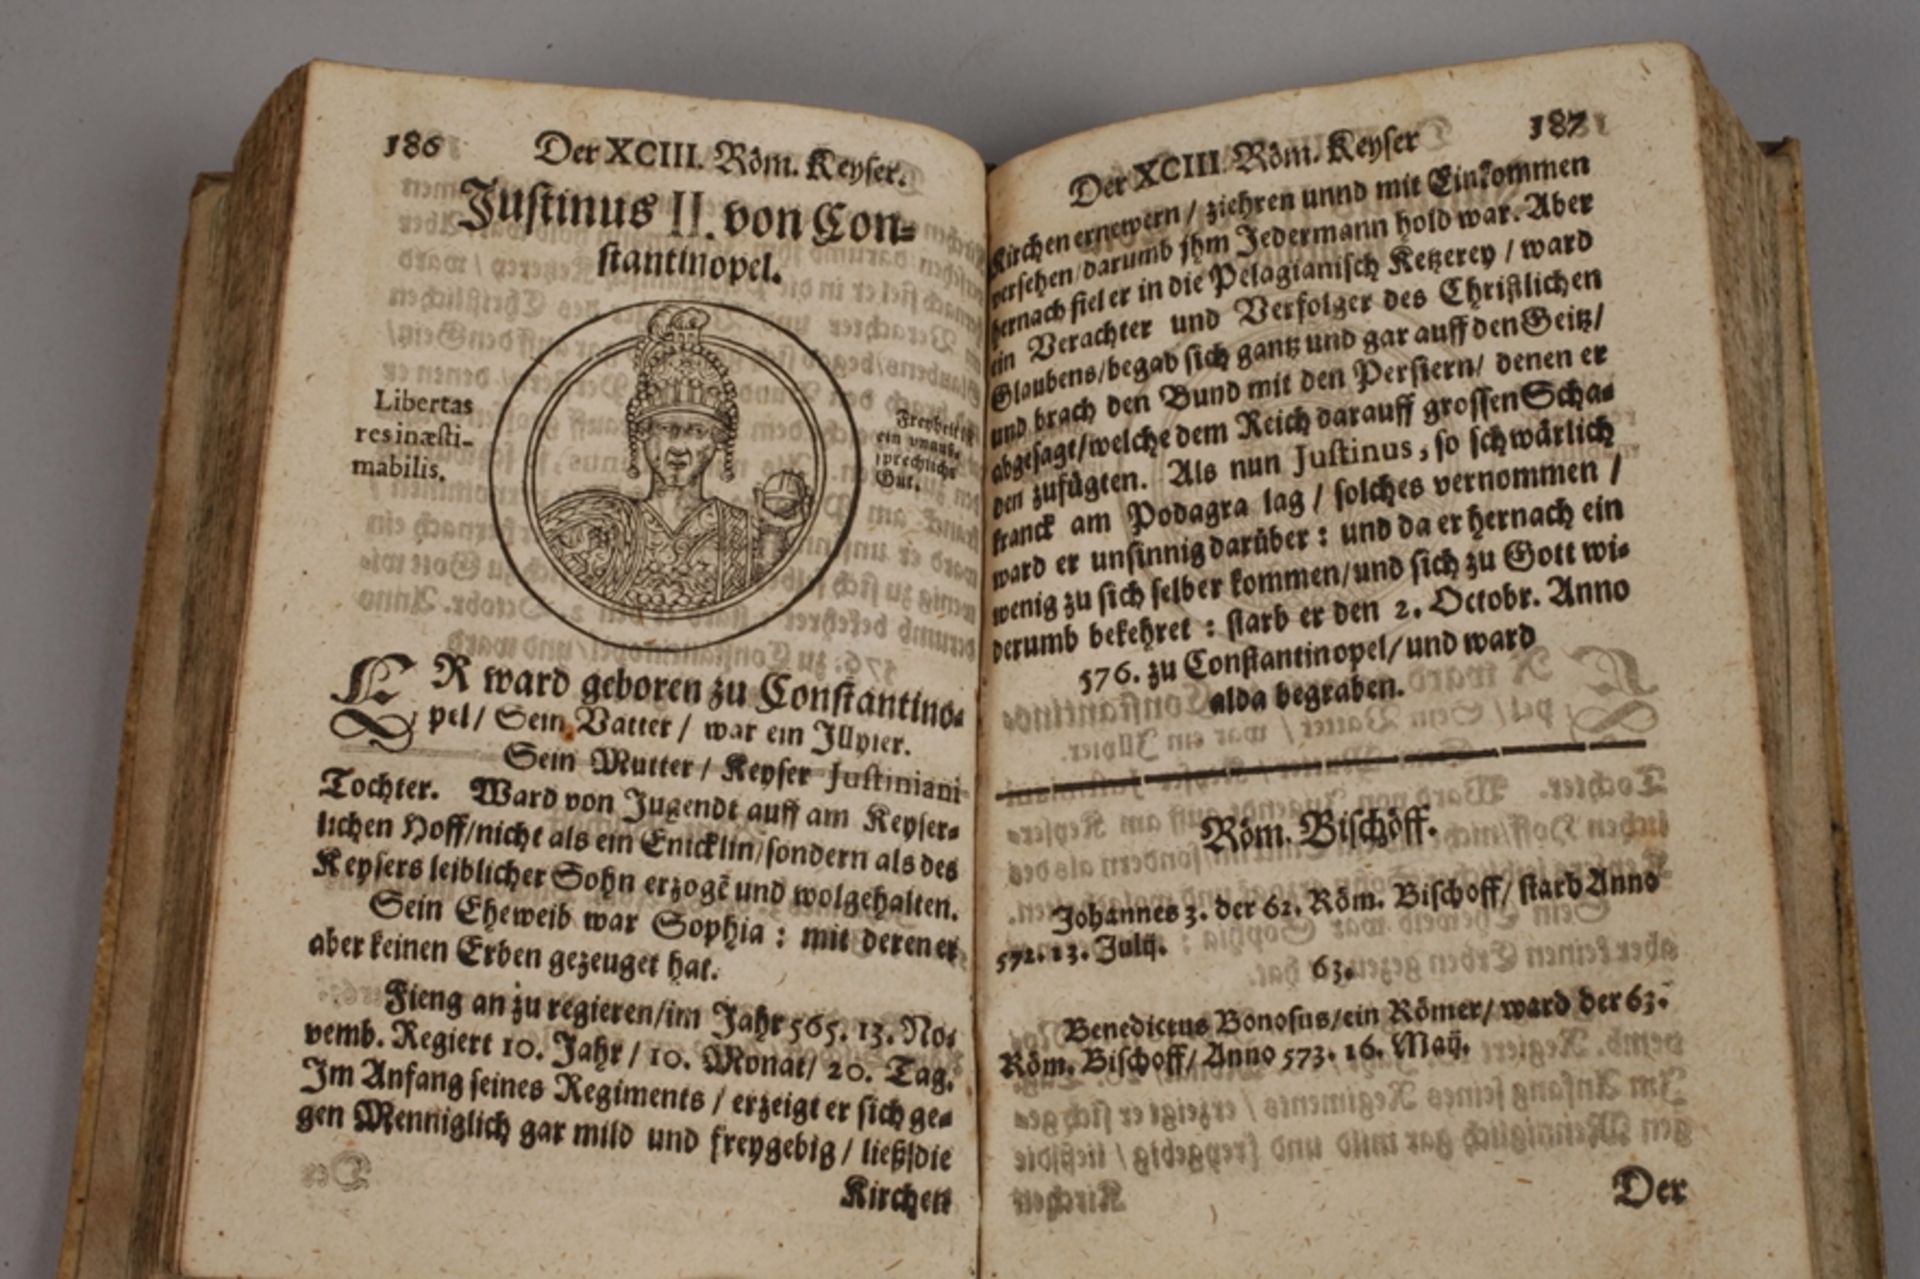 186 Der XCIII. Röm. Keyser.
Justinus II. von Con-
stantinopel.
Libertas
res inæsti-
mabilis.
Freyheit ist
ein vnauß-
sprechlichs
Gut.
ER ward geboren zu Constantino-
pel / Sein Vatter / war ein Illyier.
Sein Mutter / Keyser Justiniani
Tochter. Ward von Jugendt auff am Keyser-
lichen Hoff/nicht als ein Enicklin/sondern als des
Keysers leiblicher Sohn erzogẽ und wolgehalten.
Sein Eheweib war Sophia : mit deren er
aber keinen Erben gezeuget hat.
Fieng an zu regieren/im Jahr 565. 13. No-
vemb. Regiert 10. Jahr / 10. Monat/ 20. Tag.
Im Anfang seines Regiments / erzeigt er sich ge-
gen Menniglich gar mild und freygebig / ließ die
Kirchen
Der XCIII. Röm. Keyser 187
Kirchen ernewern / ziehren unnd mit Einkommen
versehen/darumb jhm Jedermann hold war. Aber
hernach fiel er in die Pelagianisch Ketzerey / ward
ein Verachter und Verfolger des Christlichen
Glaubens/begab sich gantz und gar auff den Geitz/
und brach den Bund mit den Persiern/ denen er
abgesagt/welche dem Reich darauff grossen Scha-
den zufügten. Als nun Justinus, so schwärlich
kranck am Podagra lag / solches vernommen /
ward er unsinnig darüber : und da er hernach ein
wenig zu sich selber kommen/und sich zu Gott wi-
derumb bekehret : starb er den 2. Octobr. Anno
576. zu Constantinopel/und ward
alda begraben.
Röm. Bischöff.
Johannes 3. der 62. Röm. Bischoff/ starb Anno
572. 13. Julij.
63.
Benedictus Bonosus/ein Römer/ ward der 63.
Röm. Bischoff/ Anno 573. 16. Maij.
Der